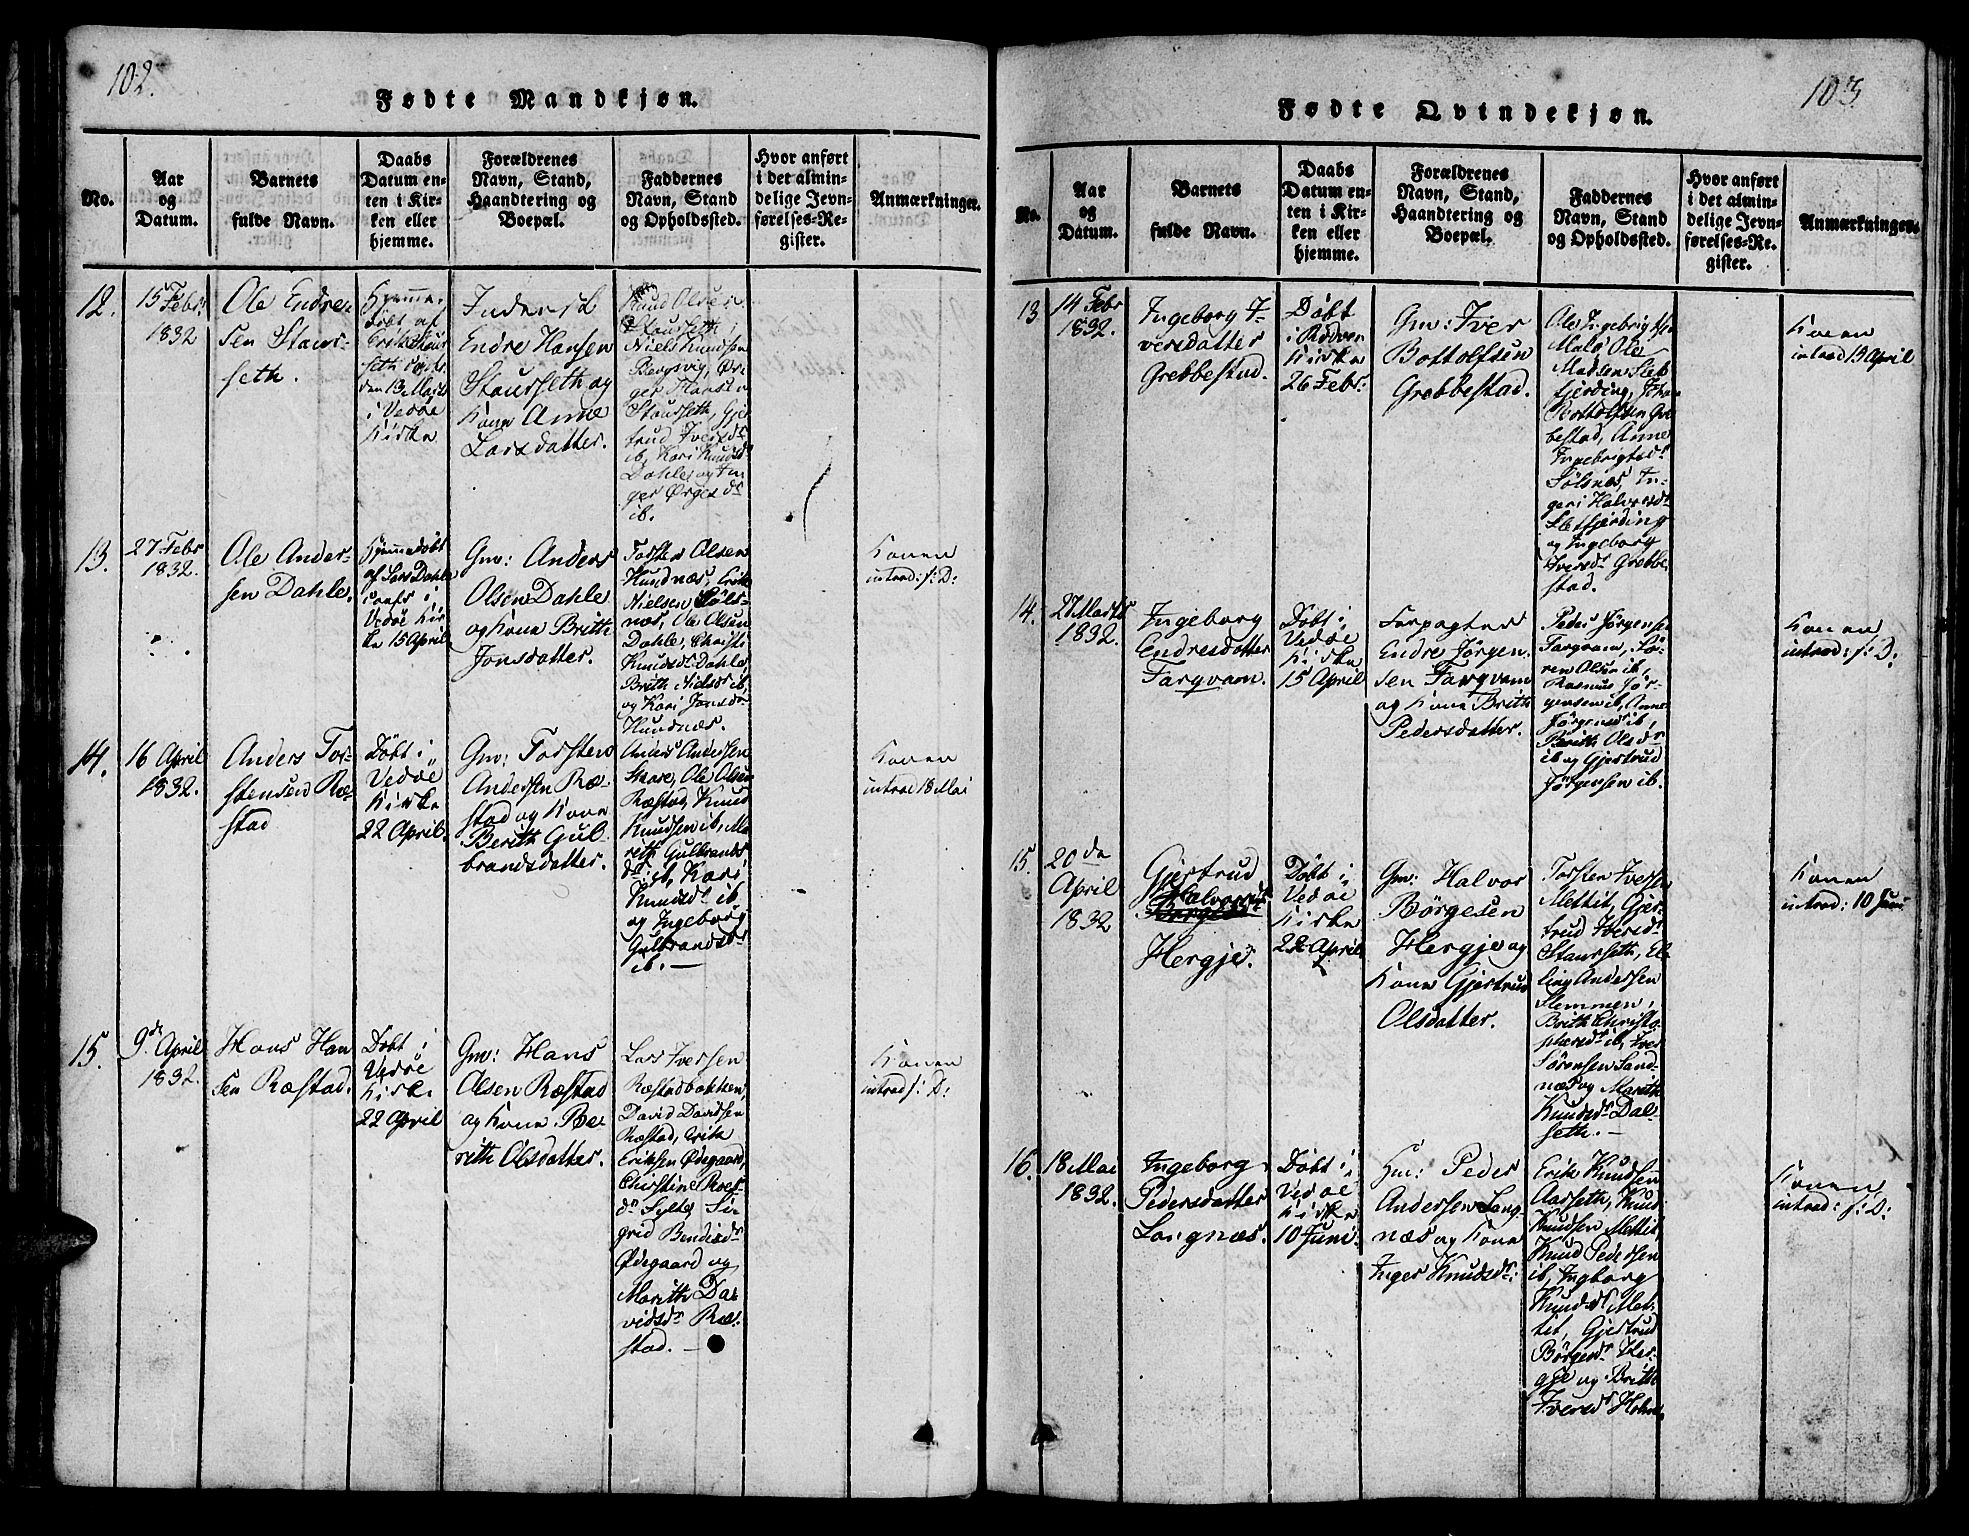 102.
Fødte Mandkjøn.
No.
Aar
og
Datum.
Barnets
fulde Navn.
Daabs
Datum en-
ten i Kir-
ken eller
hjemme.
Forældrenes
Navn, Stand,
Haandtering og
Boepæl.
Faddernes
Navn, Stand
og Opholdssted.
Hvor anført
i det almin-
delige Jevn-
førelses-Re-
gister.
Anmærkninger.
12.
15 Febr:
1832
Ole Endre-
sen Staur-
seth.
Hjemme-
døbt af
den 13 Marts
i Vedøe
Kirke
Inderst
Endre Hansen
Staurseth og
Kone Anne
Larsdatter.
Knud Olsen
Staurseth,
Niels Knudsen
Bergsvig,
Staurseth, Gje-
trud Iversdr
ib, Kari Knudsdr
Dahle og In-
ger Ørgesdr
ib.
13.
27 Febr
1832.
Ole Ander-
sen Dahle.
Hjemmedøbt
af Lars Dahle
i
Vedøe Kir-
ke 15 April
Gm: Anders
Olsen Dahle
og Kone Brith
Jonsdatter.
Torsten Olsen
Hundnæs, Erik
Nielsen Søls-
næs, Ole Olsen
Dahle, Christi
Knudsdr Dahle
Brith Nielsdr ib,
og Kari Jonsdr
Hundnæs.
Konen
introd: s: D:
14.
16 April
1832.
Anders Tor-
stensen Ræ-
stad
Døbt i
Vedøe
Kirke
22 April.
Gm: Torsten
Andersen Ræ-
stad og Kone
Berith Gul-
brandsdatter.
Anders Andersen
Skare, Ole Olsen
Ræstad, Knud
Knudsen ib, Ma-
reth Gulbrands
dr ib, Kari
Knudsdr ib
og Ingeborg
Gulbrandsdr
ib. —
Konen
introd 18 Mai
15.
9de April
1832.
Hans Han
sen Ræstad.
Døbt i
Vedøe
Kirke
22 April
Gm: Hans
Olsen Ræstad
og Kone Be-
rith Olsdatter.
Lars Iversen
Ræstadbakken,
David Davidsen
Ræstad, Erik
Eriksen Ødegaard,
Christine Roes-
dr Sylte, Si-
grid Bendixdr
Ødegaard og
Marith Da-
vidsdr Ræ-
stad. —
Konen
introd s: D:
103
Fødte Qvindekjøn.
No.
Aar
og
Datum.
Barnets
fulde Navn.
Daabs
Datum en-
ten i Kir-
ken eller
hjemme.
Forældrenes
Navn, Stand,
Haandtering og
Boepæl.
Faddernes
Navn, Stand
og Opholdssted.
Hvor anført
i det almin-
delige Jevn-
førelses-Re-
gister.
Anmærkninger.
13
14 Febr
1832.
Ingeborg I-
versdatter
Grebbestad.
Døbt
i Rødven
Kirke
26 Febr:
Gm: Iver
Bottolfsen
Grebbestad.
Ole Ingebrigtsen
Malø, Ole
Madsen Slet-
fjerding, Johan
Bottolfsen Gre-
bestad, Anne
Ingebrigtsdr
Sølsnæs, In-
geri Halvorsdr
Sletfjerding
og Ingeborg
Iversdr Grebbe-
stad.
Konen
introd 13 April
14.
27 Marts
1832.
Ingeborg
Endresdatter
Fargvam.
Døbt i
Vedøe
Kirke
15 April
Forpagter
Endre Jørgen-
sen Fargvam
og Kone Brith
Pedersdatter.
Peder Jørgensen
Fargvam, Sø-
ren Olsen ib,
Rasmus Jør-
gensen ib, Anne
Jørgensdr ib,
Brith Olsdr
ib og Gjertrud
Jørgensen ib.
Konen
introd: s: D:
15.
20de
April
1832
Gjertrud
Halvorsdr
Hergje.
Døbt i
Vedøe
Kirke
22 April
Gm: Halvor
Børgesen
Hergje og
Kone Gjertrud
Olsdatter.
Torsten Iversen
Mettit, Gjer-
trud Iversdr
Staurseth, El-
ling Andersen
Slemmen,
Brith Christo-
phersdr ib, Iver
Sørensen Sand-
næs og Marith
Knudsdr Dal-
seth. —
Konen
introd: 10 Juni
16.
18 Mai
1832.
Ingeborg
Pedersdatter
Langnæs.
Døbt i
Vedøe
Kirke
10 Juni.
Hm: Peder
Andersen Lang-
næs og Kone
Inger Knudsdr:
Erik Knudsen
Aarseth, Knud
Knudsen Mettit,
Knud Pedersen
ib, Ingborg
Knudsdr Met-
tit, Gjertrud
Børgesdr Her-
gje og Brith
Iversdr Holm.
Konen
introd: s: D: